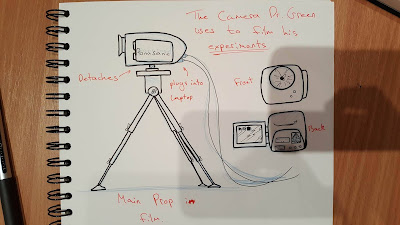 The Camera Dr. Green
uses to film his
experiments
Panasonic
Detaches
plugs into
Laptop
Front
Back
Main Prop in
film.